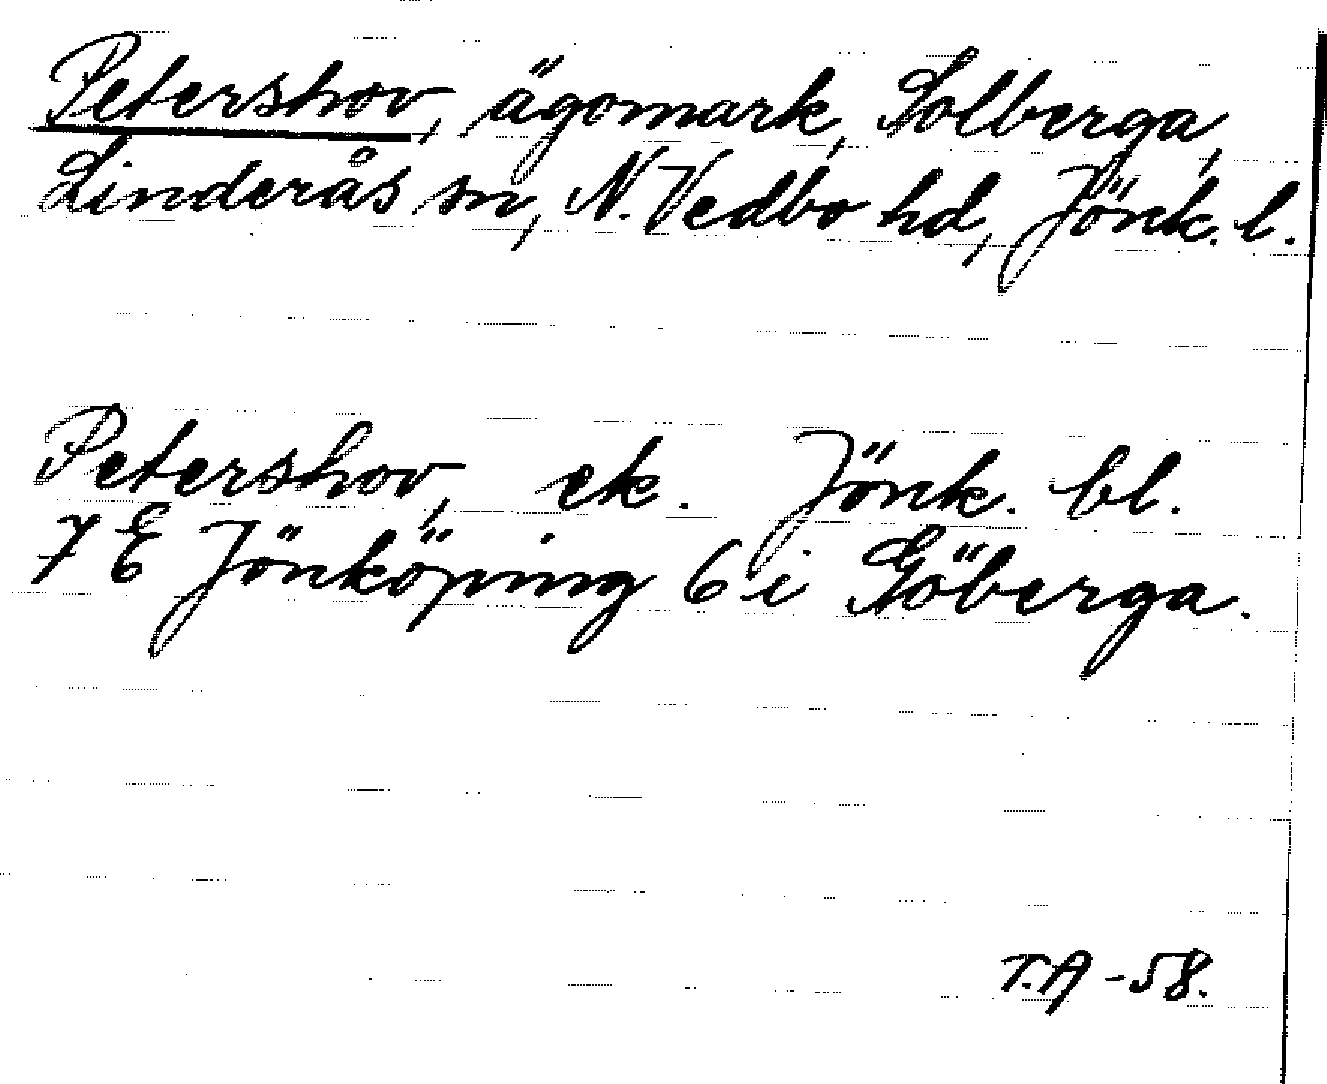 Petershov, ägomark, Solberga,
Linderås sn, N. Vedbo hd, Jönk. l.
Petershov, ek. Jönk. bl.
7 E Jönköping 6 i Göberga.
T.A -58.